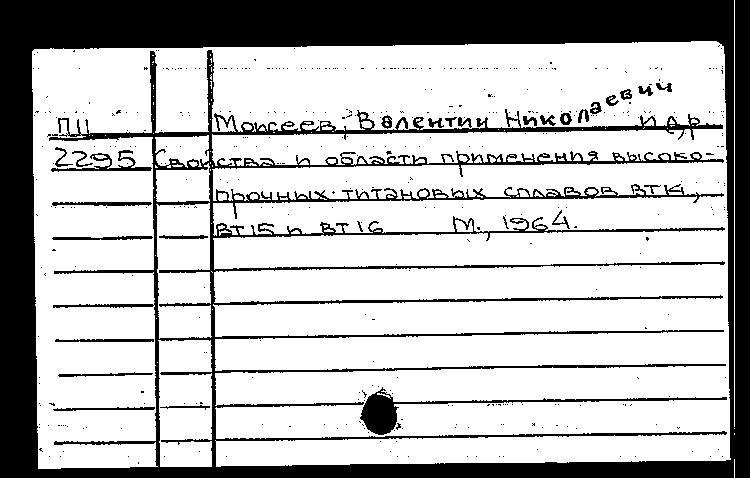 П11 Моисеев, Валентин Николаевич и др.
2295 Свойства и области применения высоко-
прочных титановых сплавов ВТ14,
ВТ15 и ВТ16 М., 1964.